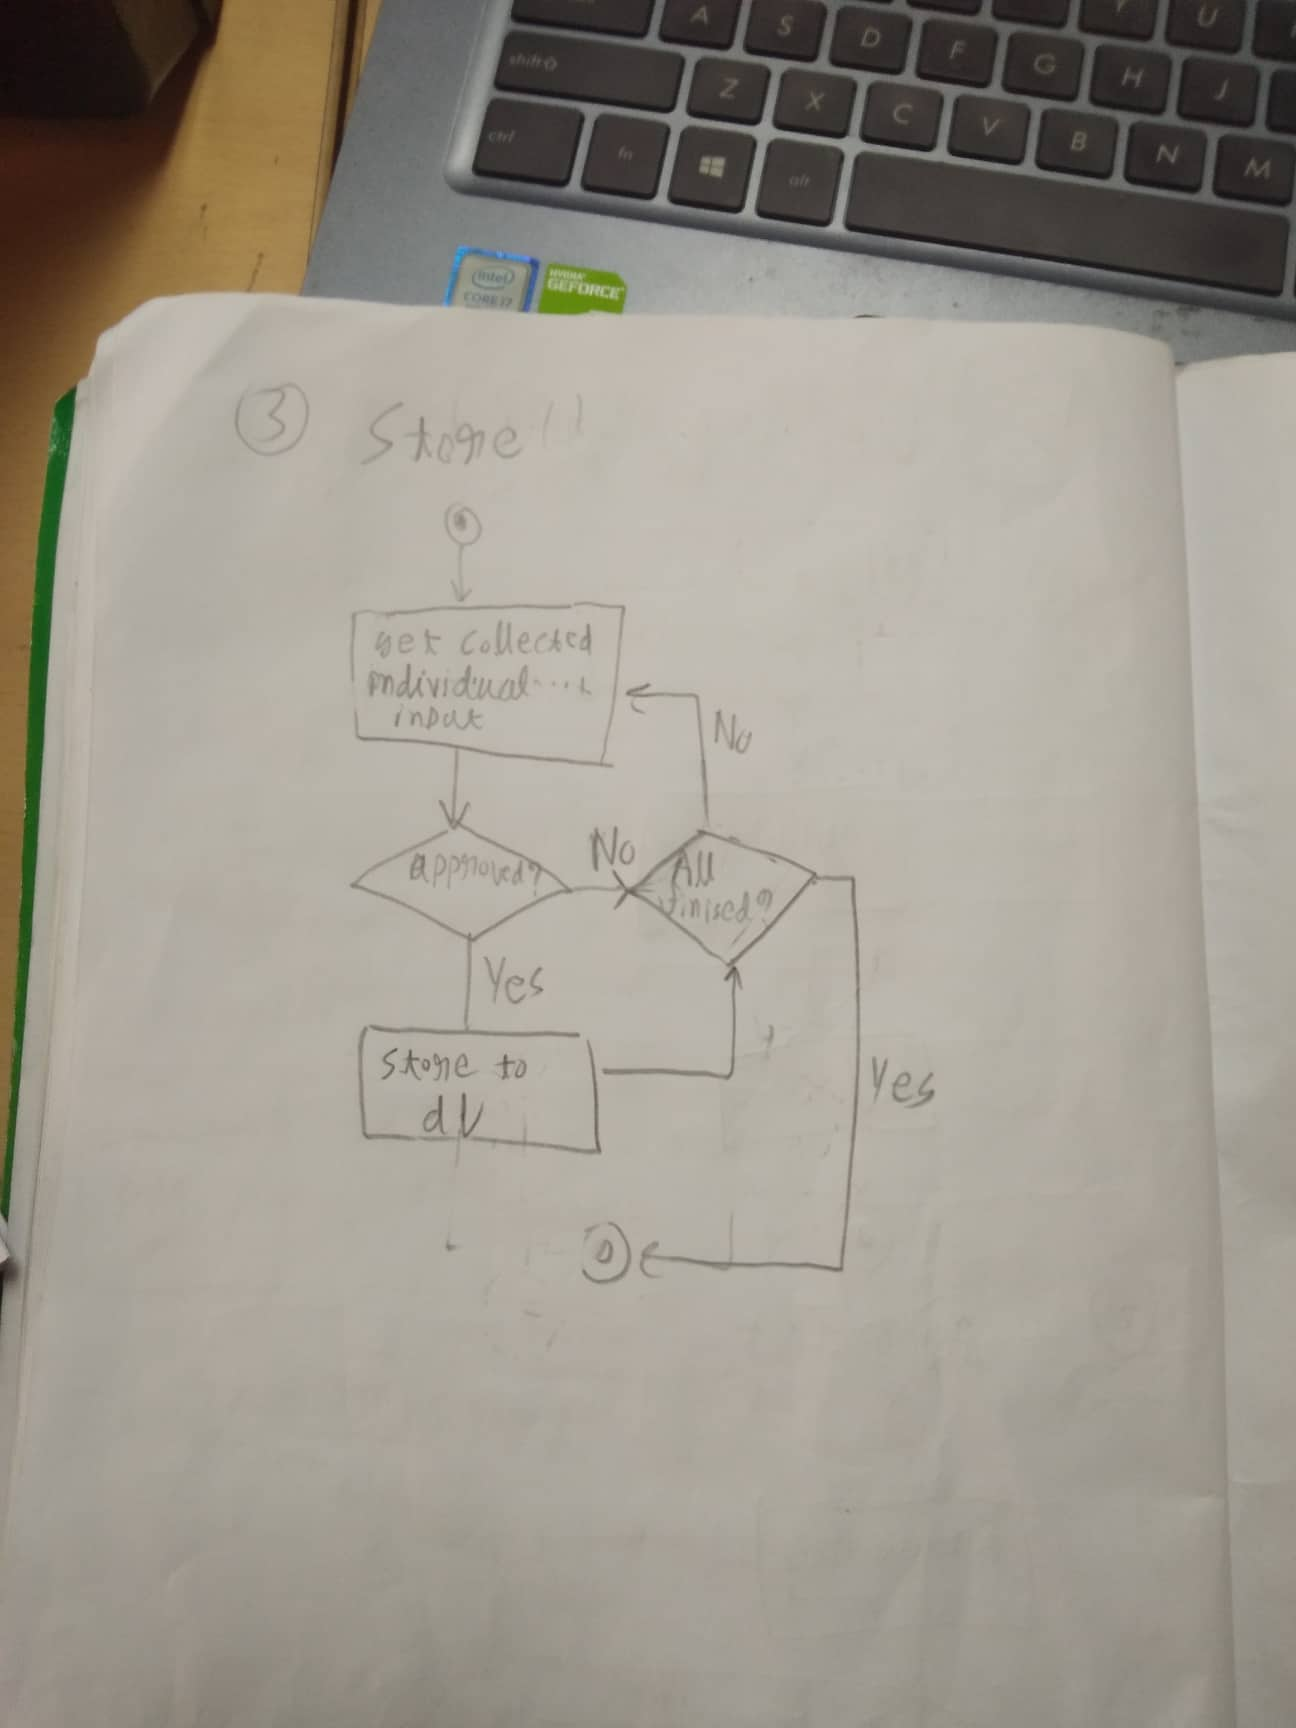 A S D F G H J
shift
Z X C V B N M
ctrl fn alt
intel
CORE i7
NVIDIA
GEFORCE
3 Store()
get collected
individual....
input
No
approved?
No
All
finised?
Yes
Store to
Yes